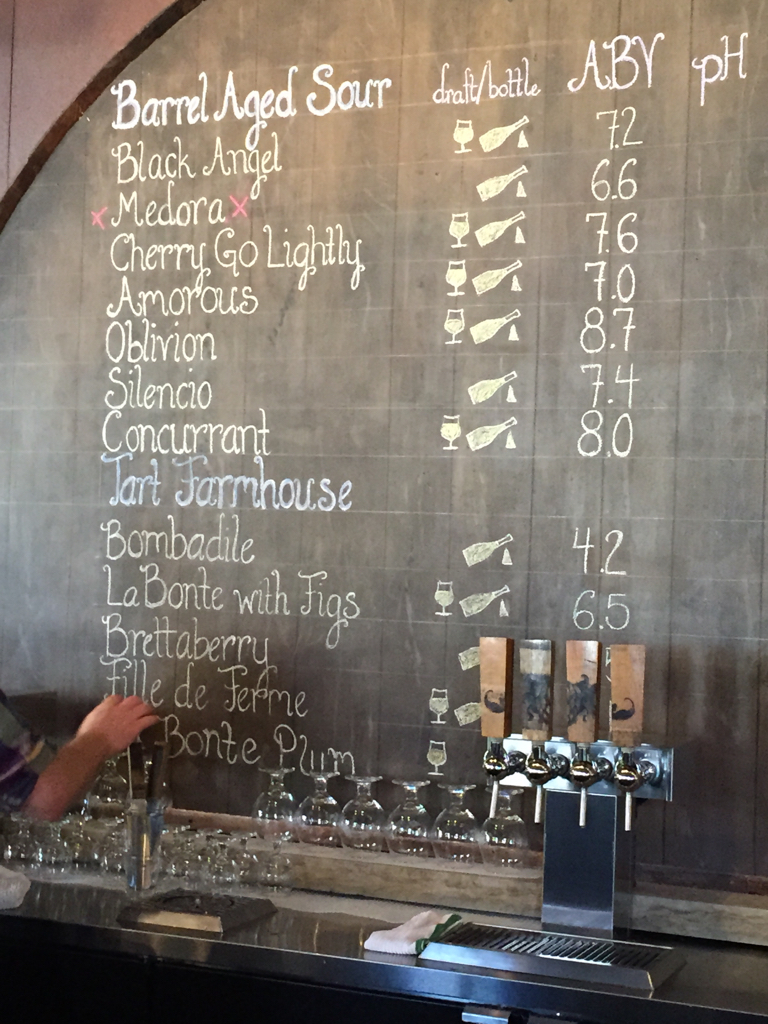 Barrel Aged Sour draft/bottle ABV pH
Black Angel 7.2
x Medora x 6.6
Cherry Go Lightly 7.6
Amorous 7.0
Oblivion 8.7
Silencio 7.4
Concurrant 8.0
Tart Farmhouse
Bombadile 4.2
LaBonte with Figs 6.5
Brettaberry
Fille de Ferme
Bonte Plum